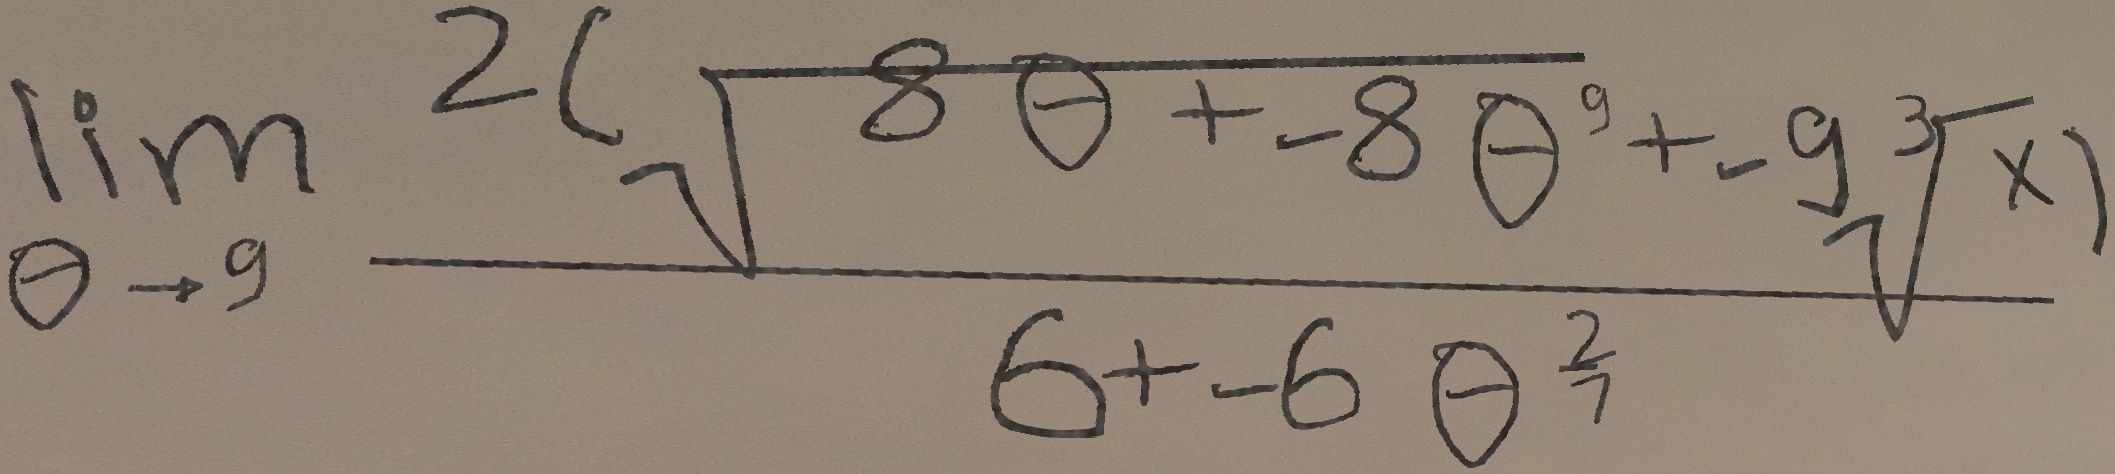 \lim_{\theta \to 9} \frac{2(\sqrt{8\theta + -8\theta^{9}} + -9\sqrt[3]{x})}{6 + -6\theta^{\frac{2}{7}}}